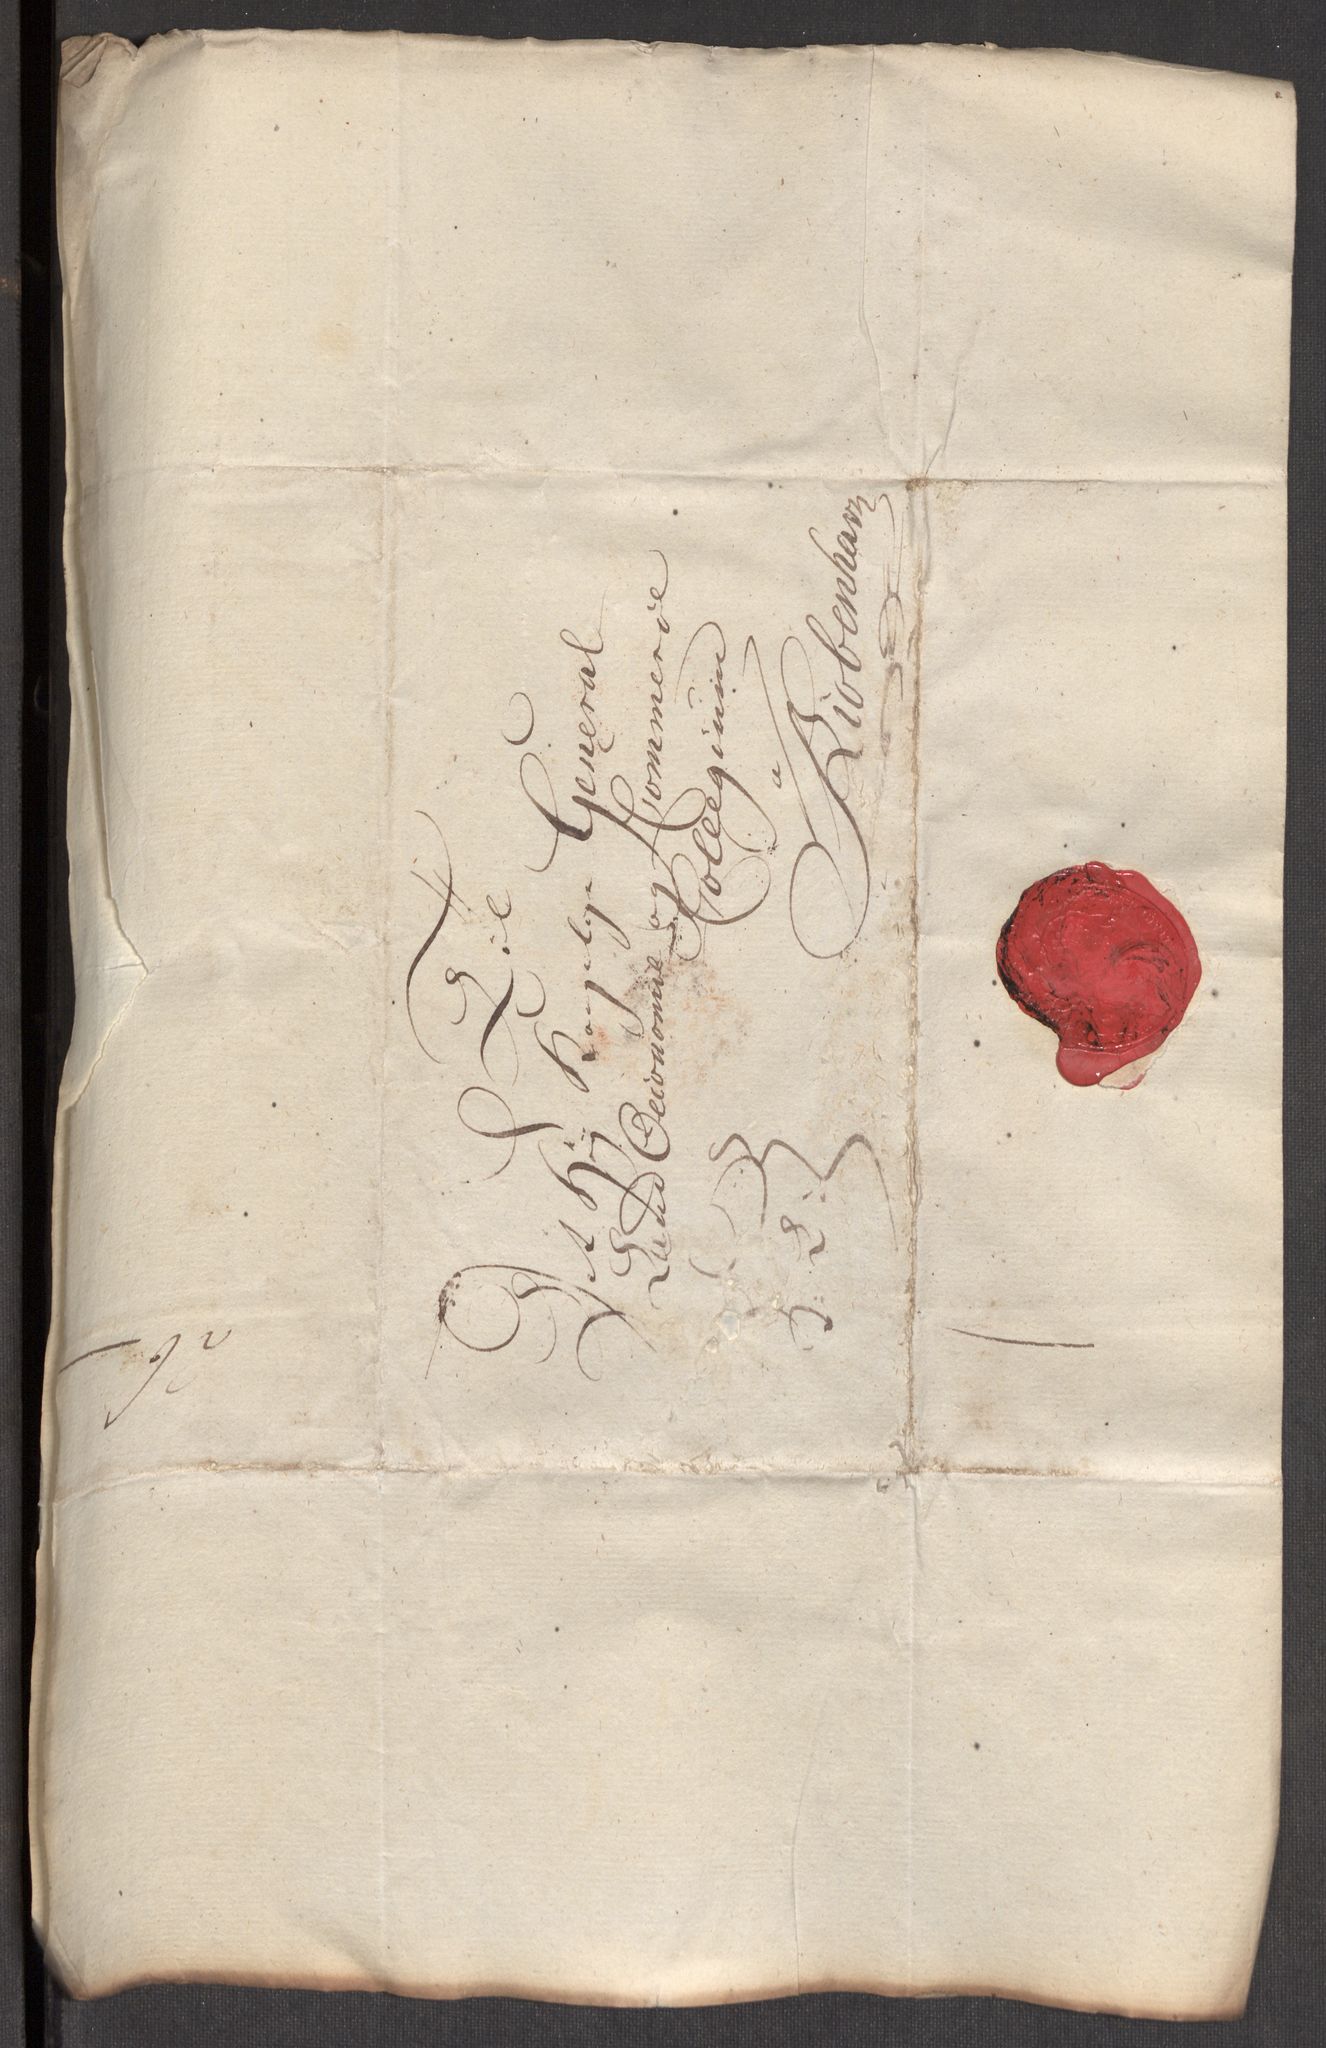 Til
Det Høy Kongelige General
Land Oeconomie og Commerce
Collegium
a
Kiøbenhavn